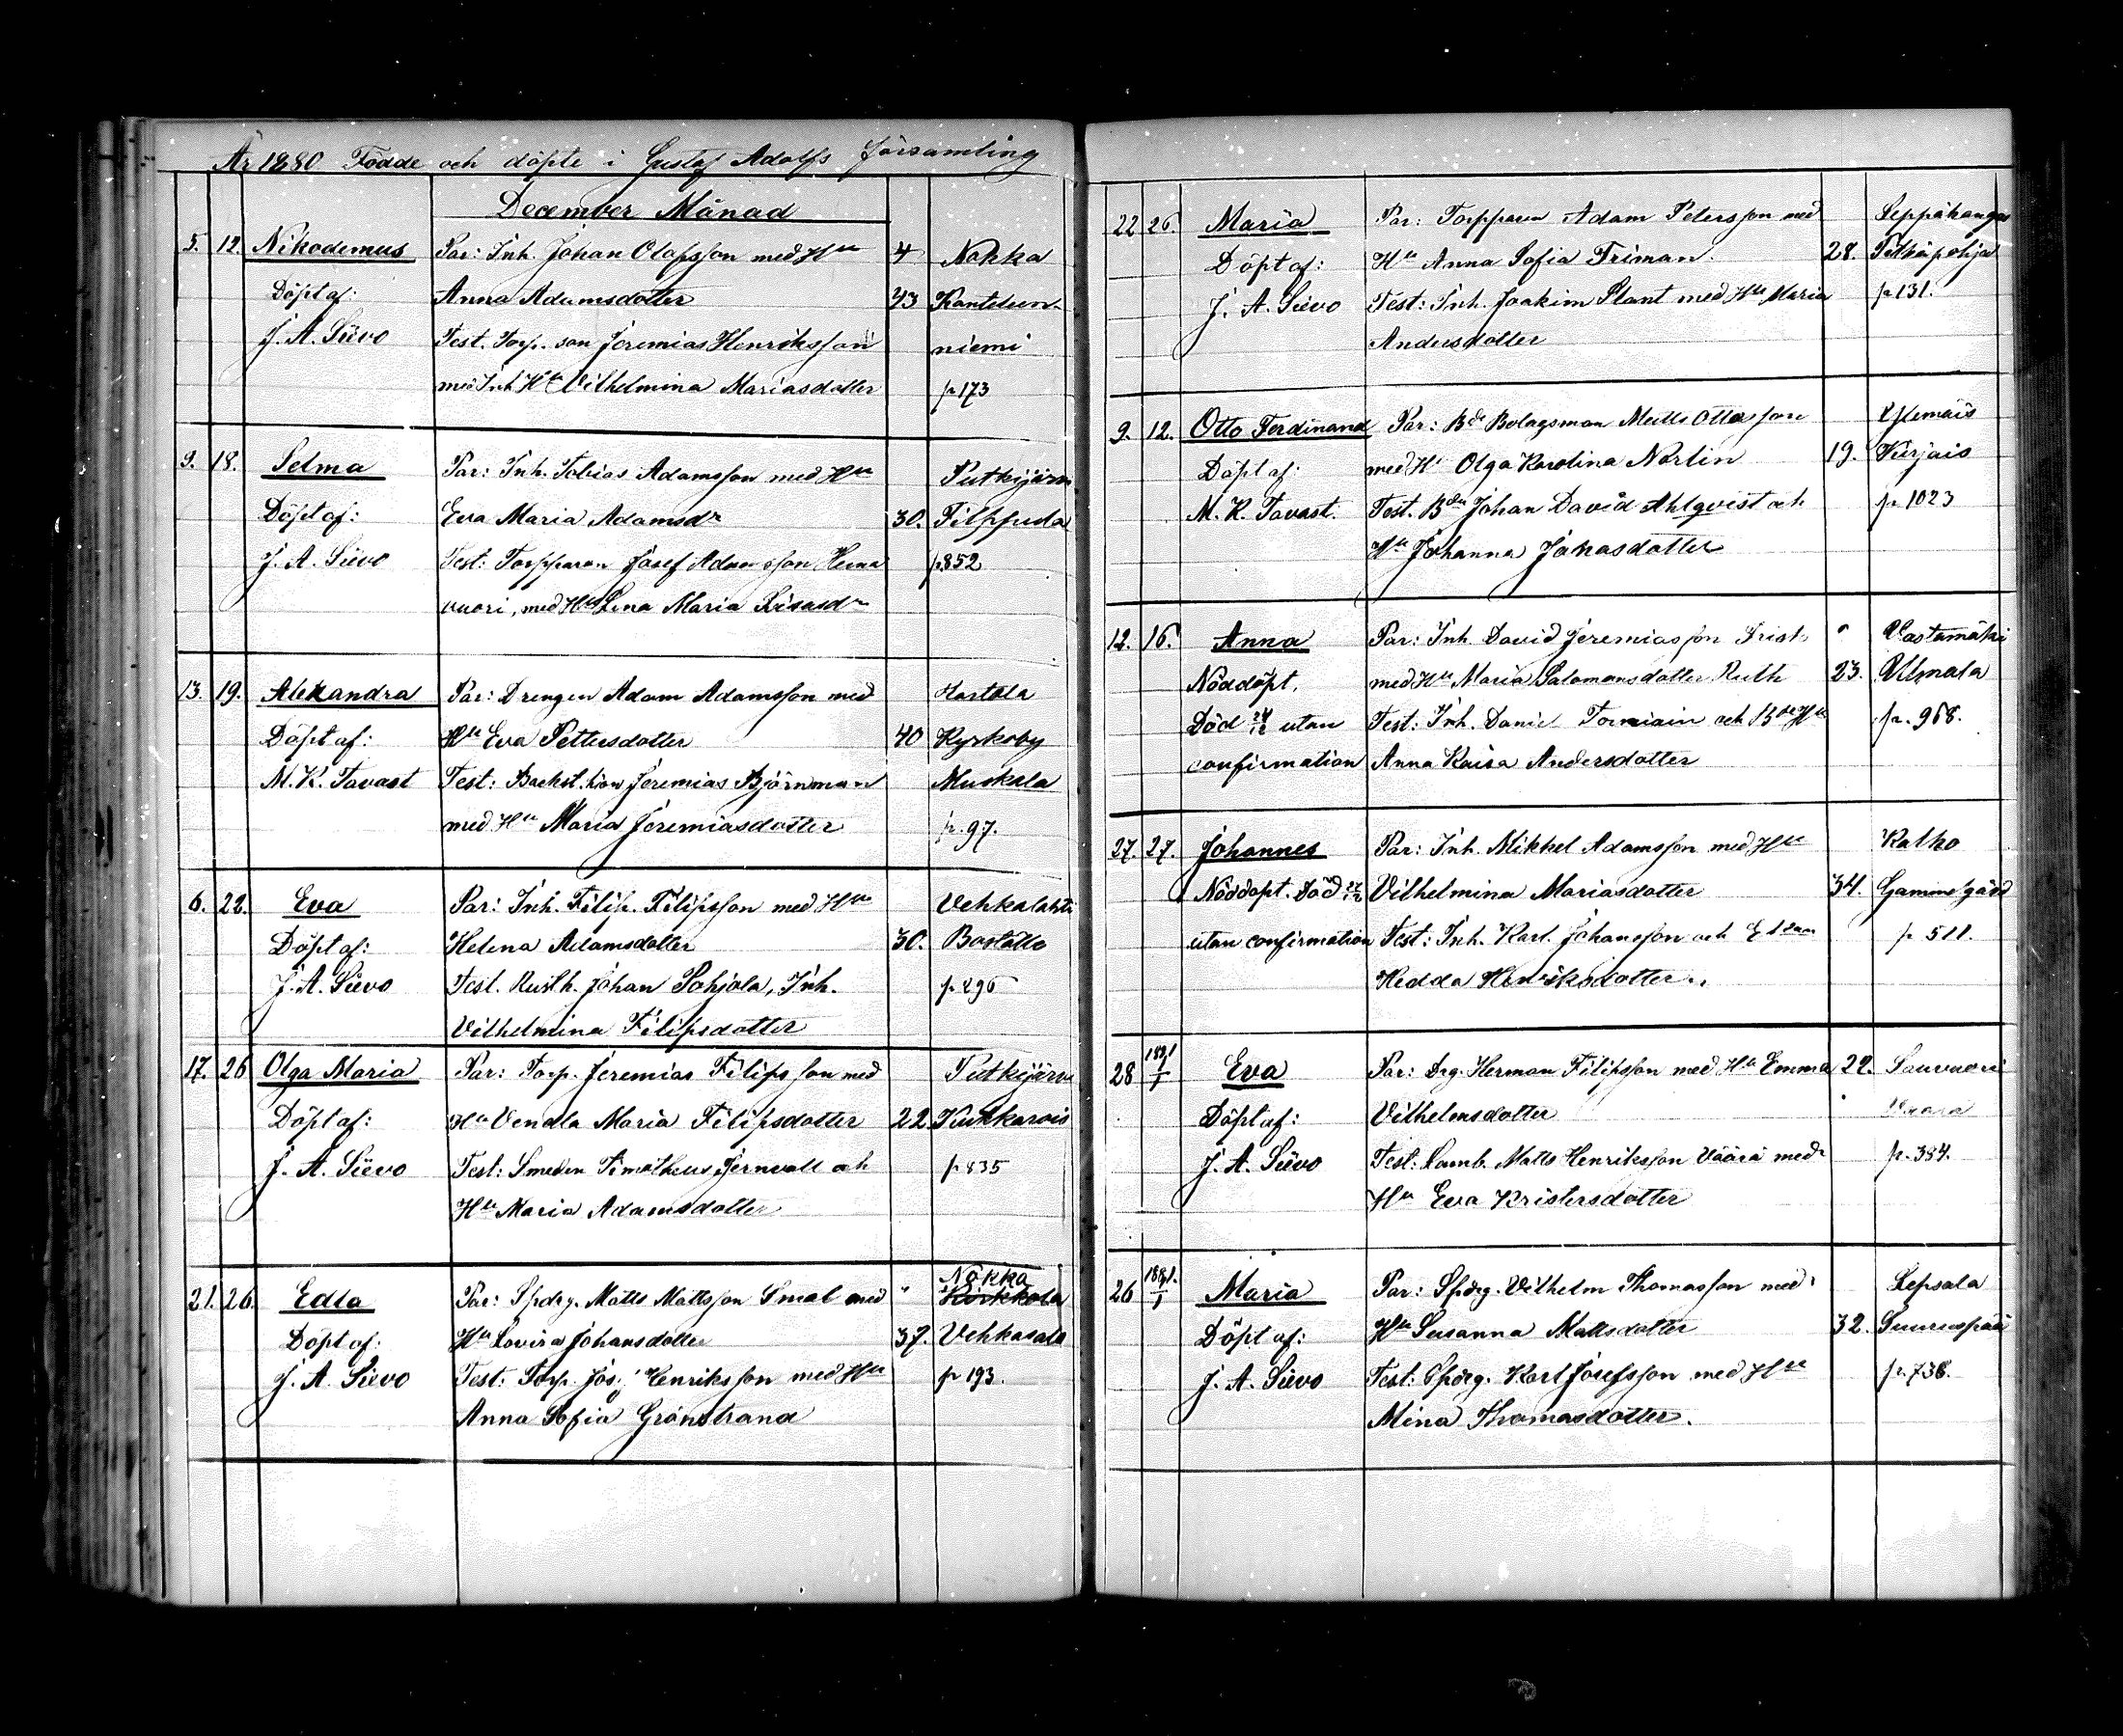 År 1880 Födde och döpte i Gustaf Adolfs församling
December Månad
5. 12. Nikodemus Par: Inh. Johan Olofsson med Hu 4 Nokka
Döpt af: Anna Adamsdotter 43 Kantelun-
J. A. Siivo Test. Torp. son Jeremias Henriksson niemi
med Inh. Hu Vilhelmina Mariasdotter p 173
9. 18. Selma Par: Inh. Tobias Adamsson med Hu Putkijärvi
Döpt af: Eva Maria Adamsdr 30. Filppula
J. A. Siivo Test: Torpparen Josef Adamsson Heina p.852
vuori, med Hu Lena Maria
13. 19. Alexandra Par: Drengen Adam Adamsson med Hartola
Döpt af: Hu Eva Pettersdotter 40 Kyrkoby
M. K. Tavast Test: Backst. hion Jeremias Björnman Muskala
med Hu Maria Jeremiasdotter p. 97.
6. 22. Eva Par: Inh. Filip. Filipsson med Hu Vehkalahti
Döpt af: Helena Adamsdotter 30.
J. A. Siivo Test. Rusth. Johan Pohjola, Inh. p 296
Vilhelmina Filipsdotter
17. 26 Olga Maria Par: Torp. Jeremias Filipsson med Putkijärvi
Döpt af: Hu Vendla Maria Filipsdotter 22. Kukkarois
J. A. Siivo Test: Smeden Timotheus Jernvall och p 835
Hu Maria Adamsdotter
Nokka
21. 26. Edla Par: Spdrg. Matts Mattsson Smal med " Kirkkola
Döpt af: Hu Lovisa Johansdotter 37. Vehkasalo
J. A. Siivo Test: Torp. Jos: Henriksson med Hu p 193.
Anna Sofia Grönstrand
22 26. Maria Par: Torpparen Adam Petersson med Seppäkangas
Döpt af: Hu Anna Sofia Friman. 28. Pitkäpohja
J. A. Siivo Test: Inh. Joakim Plant med Hu Maria p 131.
Andersdotter
9. 12. Otto Ferdinand Par: Bde Bolagsman Matts Ottosson Yllemäis
Döpt af: med Hu Olga Karolina Norlin 19. Kirjais
M. K. Tavast. Test. Bden Johan David Ahlqvist och p 1023
Hu Johanna Jonasdotter
12. 16. Anna Par: Inh. David Jeremiasson Frist " Vastamäki
Nöddöpt. med Hu Maria Salomonsdotter Ruth 23. Ulmala
Död 24/12 utan Test: Inh. Daniel Torniain och Bde Hu p. 968.
confirmation Anna Kaisa Andersdotter
27. 27. Johannes Par: Inh. Mikkel Adamsson med Hu Kalho
Nöddöpt. Död 27/12 Vilhelmina Mariasdotter 34. Gammelgård
utan confirmation Test: Inh. Karl. Johansson och Hedda Henriksdotter. p 511.
1881
28 1/1 Eva Par: Drg. Herman Filipsson med Hu Emma 22. Saurvuori
Döpt af: Vilhelmsdotter Vaara
J. A. Siivo Test: Lamb. Matts Henriksson Väärä med p. 384.
Hu Eva Kristersdotter
1881.
26 1/1 Maria Par: Spdrg. Vilhelm Thomasson med Lepsala
Döpt af: Hu Susanna Mattsdotter 32. Suurenpää
J. A. Siivo Test: Spdrg. Karl Josefsson med Hu p. 738.
Mina Thomasdotter.